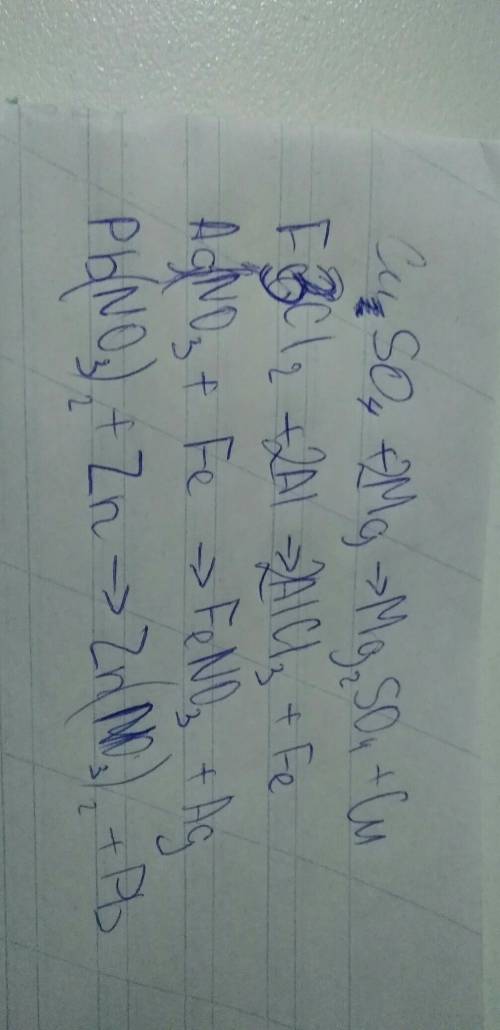 CuSO₄ + 2Mg → Mg₂SO₄ + Cu
Fe3Cl₂ + 2Al → 2AlCl₃ + Fe
AgNO₃ + Fe → FeNO₃ + Ag
Pb(NO₃)₂ + Zn → Zn(NO₃)₂ + Pb